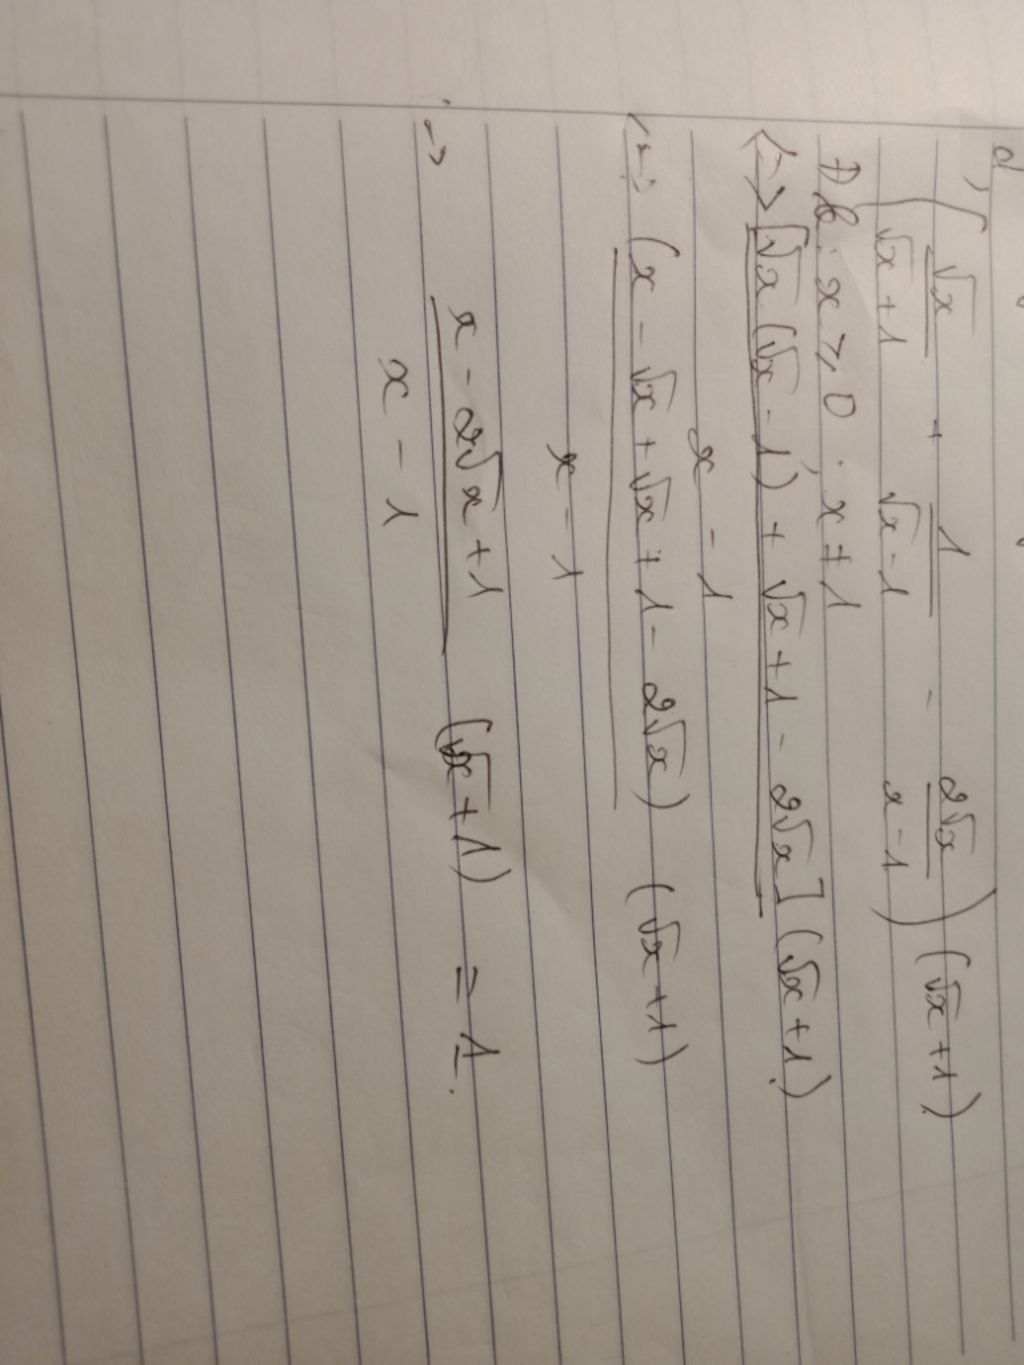 d, ( √x/(√x+1) + 1/(√x-1) - 2√x/(x-1) ) (√x+1)
Đk: x ≥ 0. x ≠ 1
<=> [√x(√x-1) + √x+1 - 2√x] (√x+1)
x - 1
<=> (x - √x + √x + 1 - 2√x) (√x+1)
x - 1
-> x - 2√x + 1 (√x+1) = 1.
x - 1